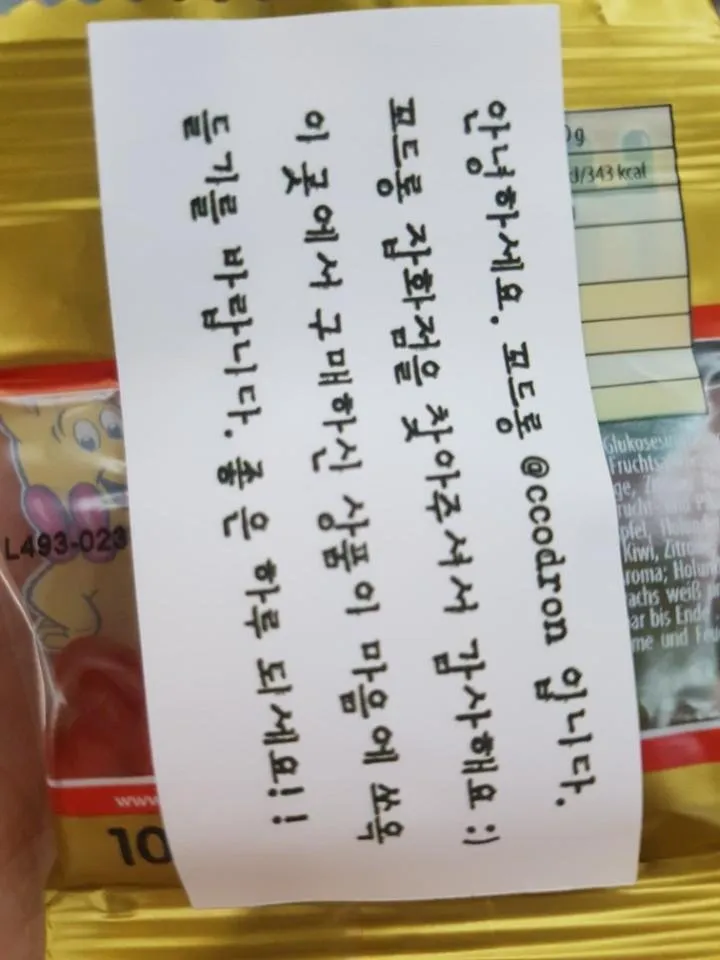 안녕하세요. 꼬드롱 @ccodron 입니다.
꼬드롱 잡화점을 찾아주셔서 감사해요 :)
이 곳에서 구매하신 상품이 마음에 쏘옥
들기를 바랍니다. 좋은 하루 되세요! !
g
/343 kcal
Glukoses
Fruchts
Kiwi, Zitro
roma; Holun
achs weiß
ar bis Ende
me und
L493-023
www
10